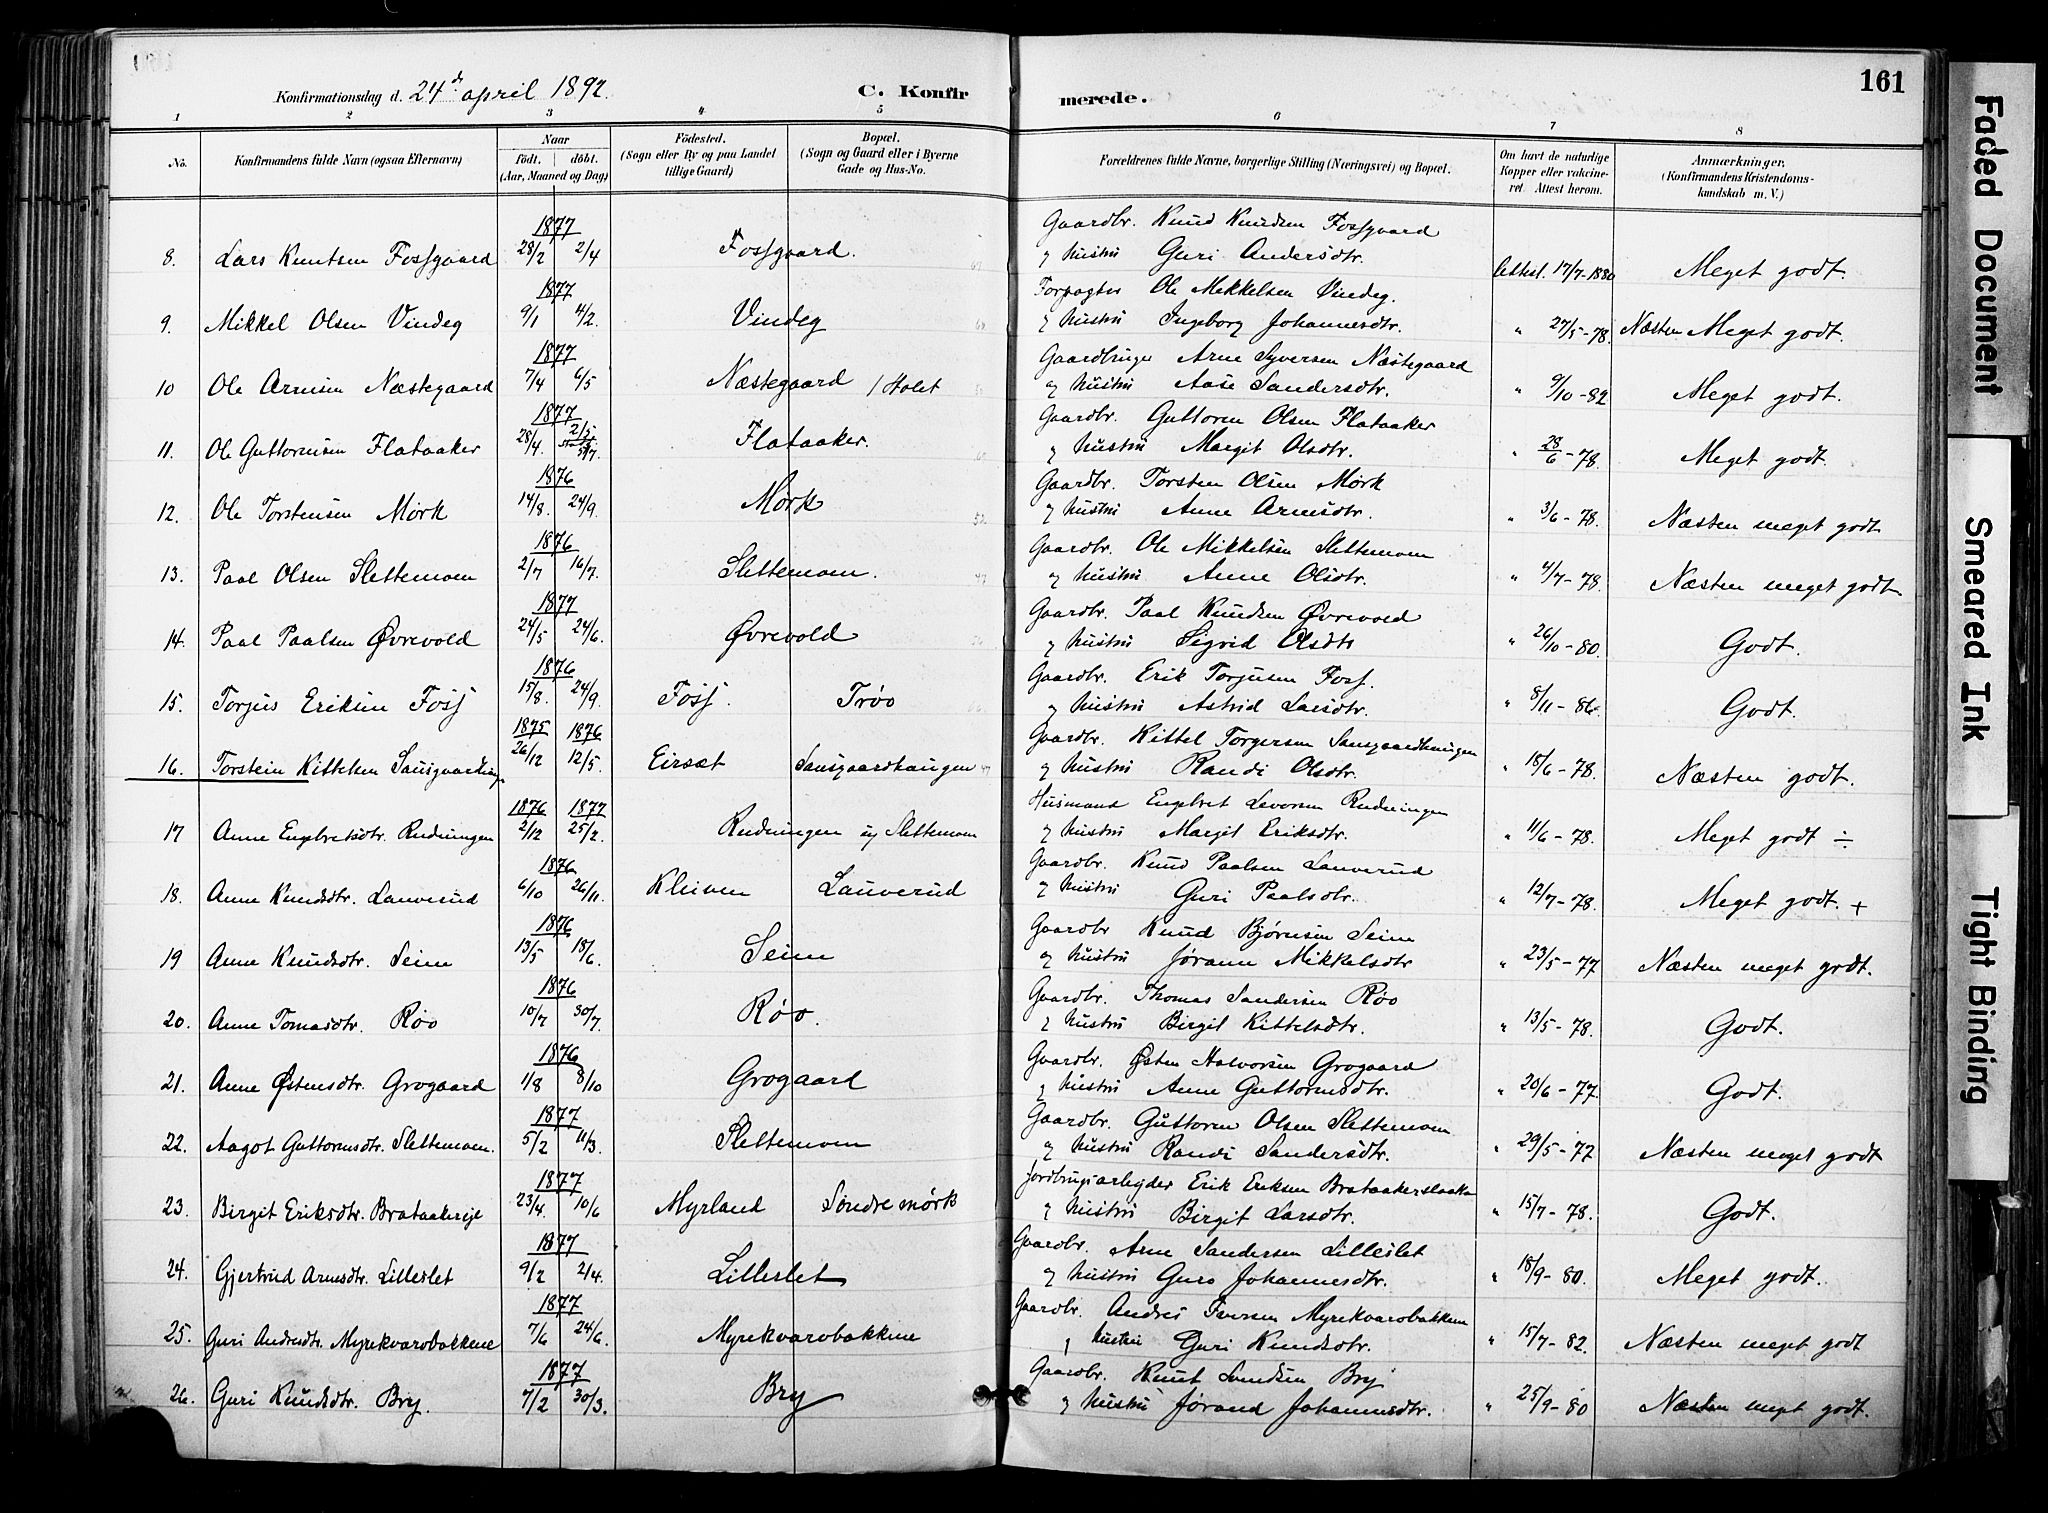 161
Konfirmationsdag d. 24de april 1892.
C. Konfirmerede.
1 2 3 4 5 6 7 8
No. Konfirmandens fulde Navn (ogsaa Efternavn) Naar födt. döbt. (Aar, Maaned og Dag) Födested. (Sogn eller By og paa Landet tillige Gaard) Bopæl. (Sogn og Gaard eller i Byerne Gade og Hus-No. Forældrenes fulde Navne, borgerlige Stilling (Næringsvei) og Bopæl. Om havt de naturlige Kopper eller vakcineret. Attest herom. Anmærkninger, (Konfirmandens Kristendomskundskab m. V.)
1877 Gaardbr. Knud Knudsen Fossgaard
8. Lars Knutsen Fossgaard 28/2 2/4 Fossgaard. og hustru Guri Andersdtr. 17/7-1880 Meget godt.
1877 Forpagter Ole Mikkelsen Vindeg.
9. Mikkel Olsen Vindeg 9/1 4/2. Vindeg og hustru Ingeborg Johannesdtr. " 27/5-78. Næsten Meget godt.
1877 Gaardbruger Arne Syversen Næstegaard
10 Ole Arnesen Næstegaard 7/4 6/5 Næstegaard / Holet og hustru Aase Sandersdtr. " 9/10-82 Meget godt.
1877 Gaardbr. Guttorm Olsen Flataaker
11. Ole Guttormsen Flataaker 28/4. 2/5 Flataaker. og hustru Margit Olsdtr. " 28/6-78. Meget godt.
1876 Gaardbr. Torsten Olsen Mørk
12. Ole Torstensen Mørk 14/8. 24/9. Mørk 52. og hustru Anne Arnesdtr. " 3/6-78. Næsten meget godt
1876 Gaardbr. Ole Mikkelsen Slettemoen
13. Paal Olsen Slettemoen 2/7 16/7. Slettemoen. og hustru Anne Olsdtr. " 4/7-78. Næsten meget godt.
1877 Gaardbr. Paal Knudsen Øvrevold
14. Paal Paalsen Øvrevold 24/5 24/6. Øvrevold og hustru Sigrid Olsdtr " 26/10-80. Godt.
1876 Gaardbr. Erik Torjusen Foss.
15. Torjus Eriksen Foss 15/8. 24/9. Foss. Trøo og hustru Astrid Larsdtr. " 8/11-86. Godt.
1875 1876 Gaardbr. Kittel Torgersen Sansgaardhaugen
16. Torstein Kittelsen Sansgaardhaugen 26/12 12/5. Eirsæt Sansgaardhaugen og hustru Randi Olsdtr. " 18/6-78. Næsten godt.
1876 1877 Husmand Engebret Levorsen Rudningen
17 Anne Engebretsdtr. Rudningen 2/12 25/2. Rudningen og Slettemoen og hustru Margit Eriksdtr. " 11/6-78. Meget godt ÷
1876 Gaardbr. Knud Paalsen Lauverud
18. Anne Knudsdtr. Lauverud 6/10 26/11. Kleiven Lauverud og hustru Guri Paalsdtr. " 12/7-78. Meget godt. +
1876 Gaardbr Knud Bjørnsen Seim
19 Anne Knudsdtr. Seim 13/5 18/6. Seim og hustru Jørann Mikkelsdtr " 23/5-77 Næsten meget godt.
1876 Gaardbr. Thomas Sandersen Røo
20. Anne Tomasdtr. Røo 10/7 30/7. Røo. og hustru Birgit Kittelsdtr. " 13/5-78. Godt.
1876 Gaardbr. Østen Halvorsen Grogaard
21. Anne Østensdtr. Grogaard 1/8 8/10 Grogaard og hustru Anne Guttormsdtr. " 20/6-77. Godt.
1877 Gaardbr. Guttorm Olsen Slettemoen
22. Aagot Guttormsdtr. Slettemoen. 5/2 11/3. Slettemoen og hustru Randi Sandersdtr. " 29/5-77 Næsten meget godt
1877 Jordbrugsarbejder Erik Eriksen Brataakerslaaka
23. Birgit Eriksdtr. Brataakereje 23/4. 10/6 Myrland Søndre mørk og hustru Birgit Larsdtr. " 15/7-78. Godt.
1877 Gaardbr. Arne Sandersen Lilleslet
24. Gjertrud Arnesdtr. Lilleslet 9/2 2/4. Lilleslet og hustru Guro Johannesdtr. " 18/9-80. Meget godt.
1877 Gaardbr. Andres Iversen Myrekvarobakken
25. Guri Andresdtr. Myrekvarobakkene 7/6 24/6. Myrekvarobakkene og hustru Guri Knudsdtr. " 15/7-82. Næsten meget godt
1877 Gaardbr. Knut Svendsen Bry
26. Guri Knudsdtr. Bry. 7/2 30/3. Bry og hustru Jørand Johannesdtr. " 25/9-80 Næsten meget godt.
Faded Document
Smeared Ink
Tight Binding